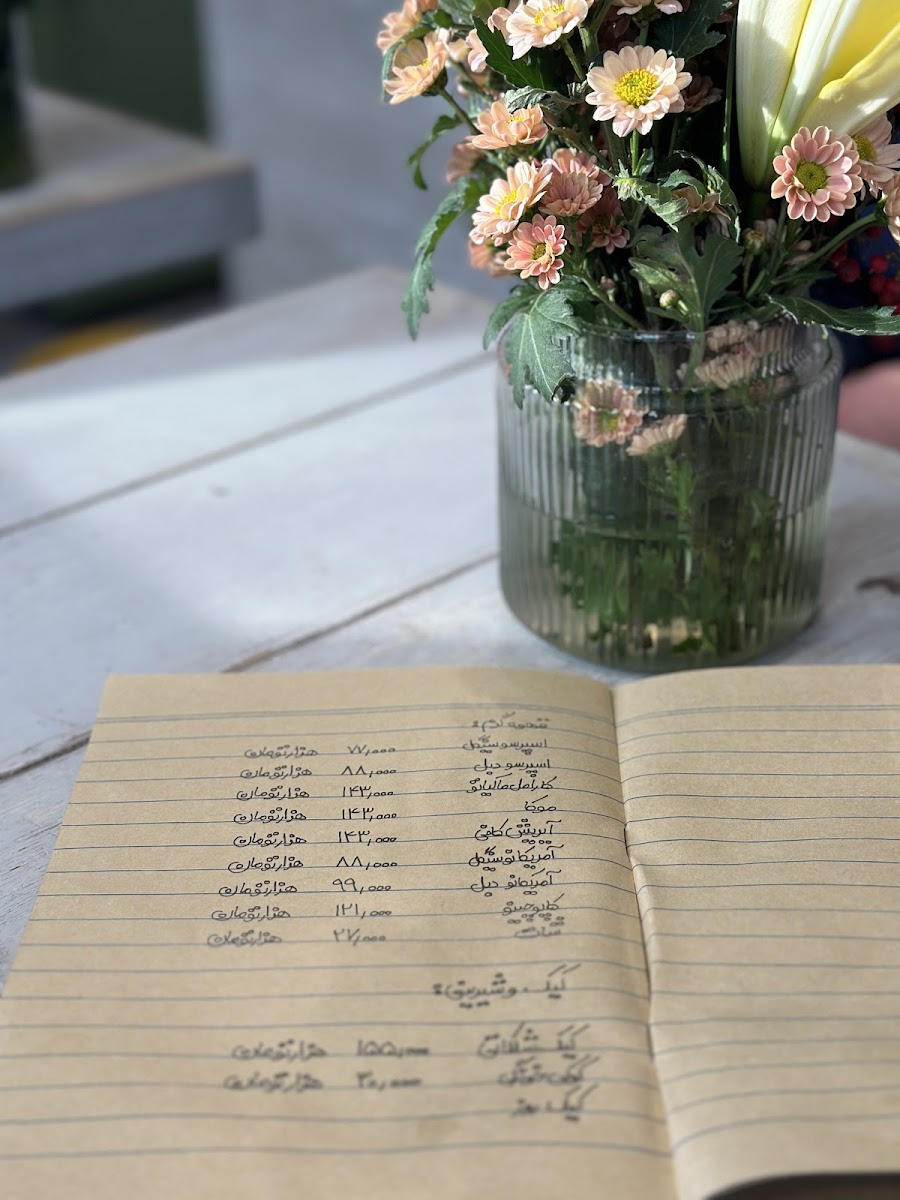 قهوه گرم:
اسپرسو سینگل ۷۷,۰۰۰ هزارتومان
اسپرسو دبل ۸۸,۰۰۰ هزارتومان
کارامل ماکیاتو ۱۴۳,۰۰۰ هزارتومان
موکا ۱۴۳,۰۰۰ هزارتومان
آیریش کافی ۱۴۳,۰۰۰ هزارتومان
آمریکانو سینگل ۸۸,۰۰۰ هزارتومان
آمریکانو دبل ۹۹,۰۰۰ هزارتومان
کاپوچینو ۱۲۱,۰۰۰ هزارتومان
شات ۲۷,۰۰۰ هزارتومان
کیک و شیرینی:
کیک شکلاتی ۱۵۵,۰۰۰ هزارتومان
۳۰,۰۰۰ هزارتومان
کیک روز